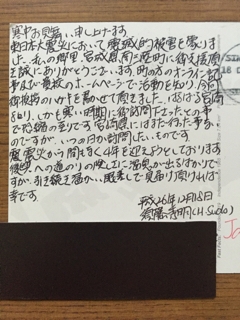 寒中お見舞い申し上げます
東日本大震災において壊滅的被害を蒙りま
した、私の郷里、宮城県
誠にありがとうございます。町の方のオンライン記
事及び貴校のホームページで活動を知り、今回
させて頂きました。はるばる宮崎
より、しかも寒い時期に御訪問下さったとの事
で恐縮の至りです。宮崎県にはまだ行った事がない
のですが、いつの日か訪問したいものです。
震災から間もなく4年を迎えようとしております
復興への道のりの険しさに溜息が出るばかりで
すが、引き続き温かい眼差しで見届け頂ければ
幸です。
平成26年12月18日
(H. Sudo)